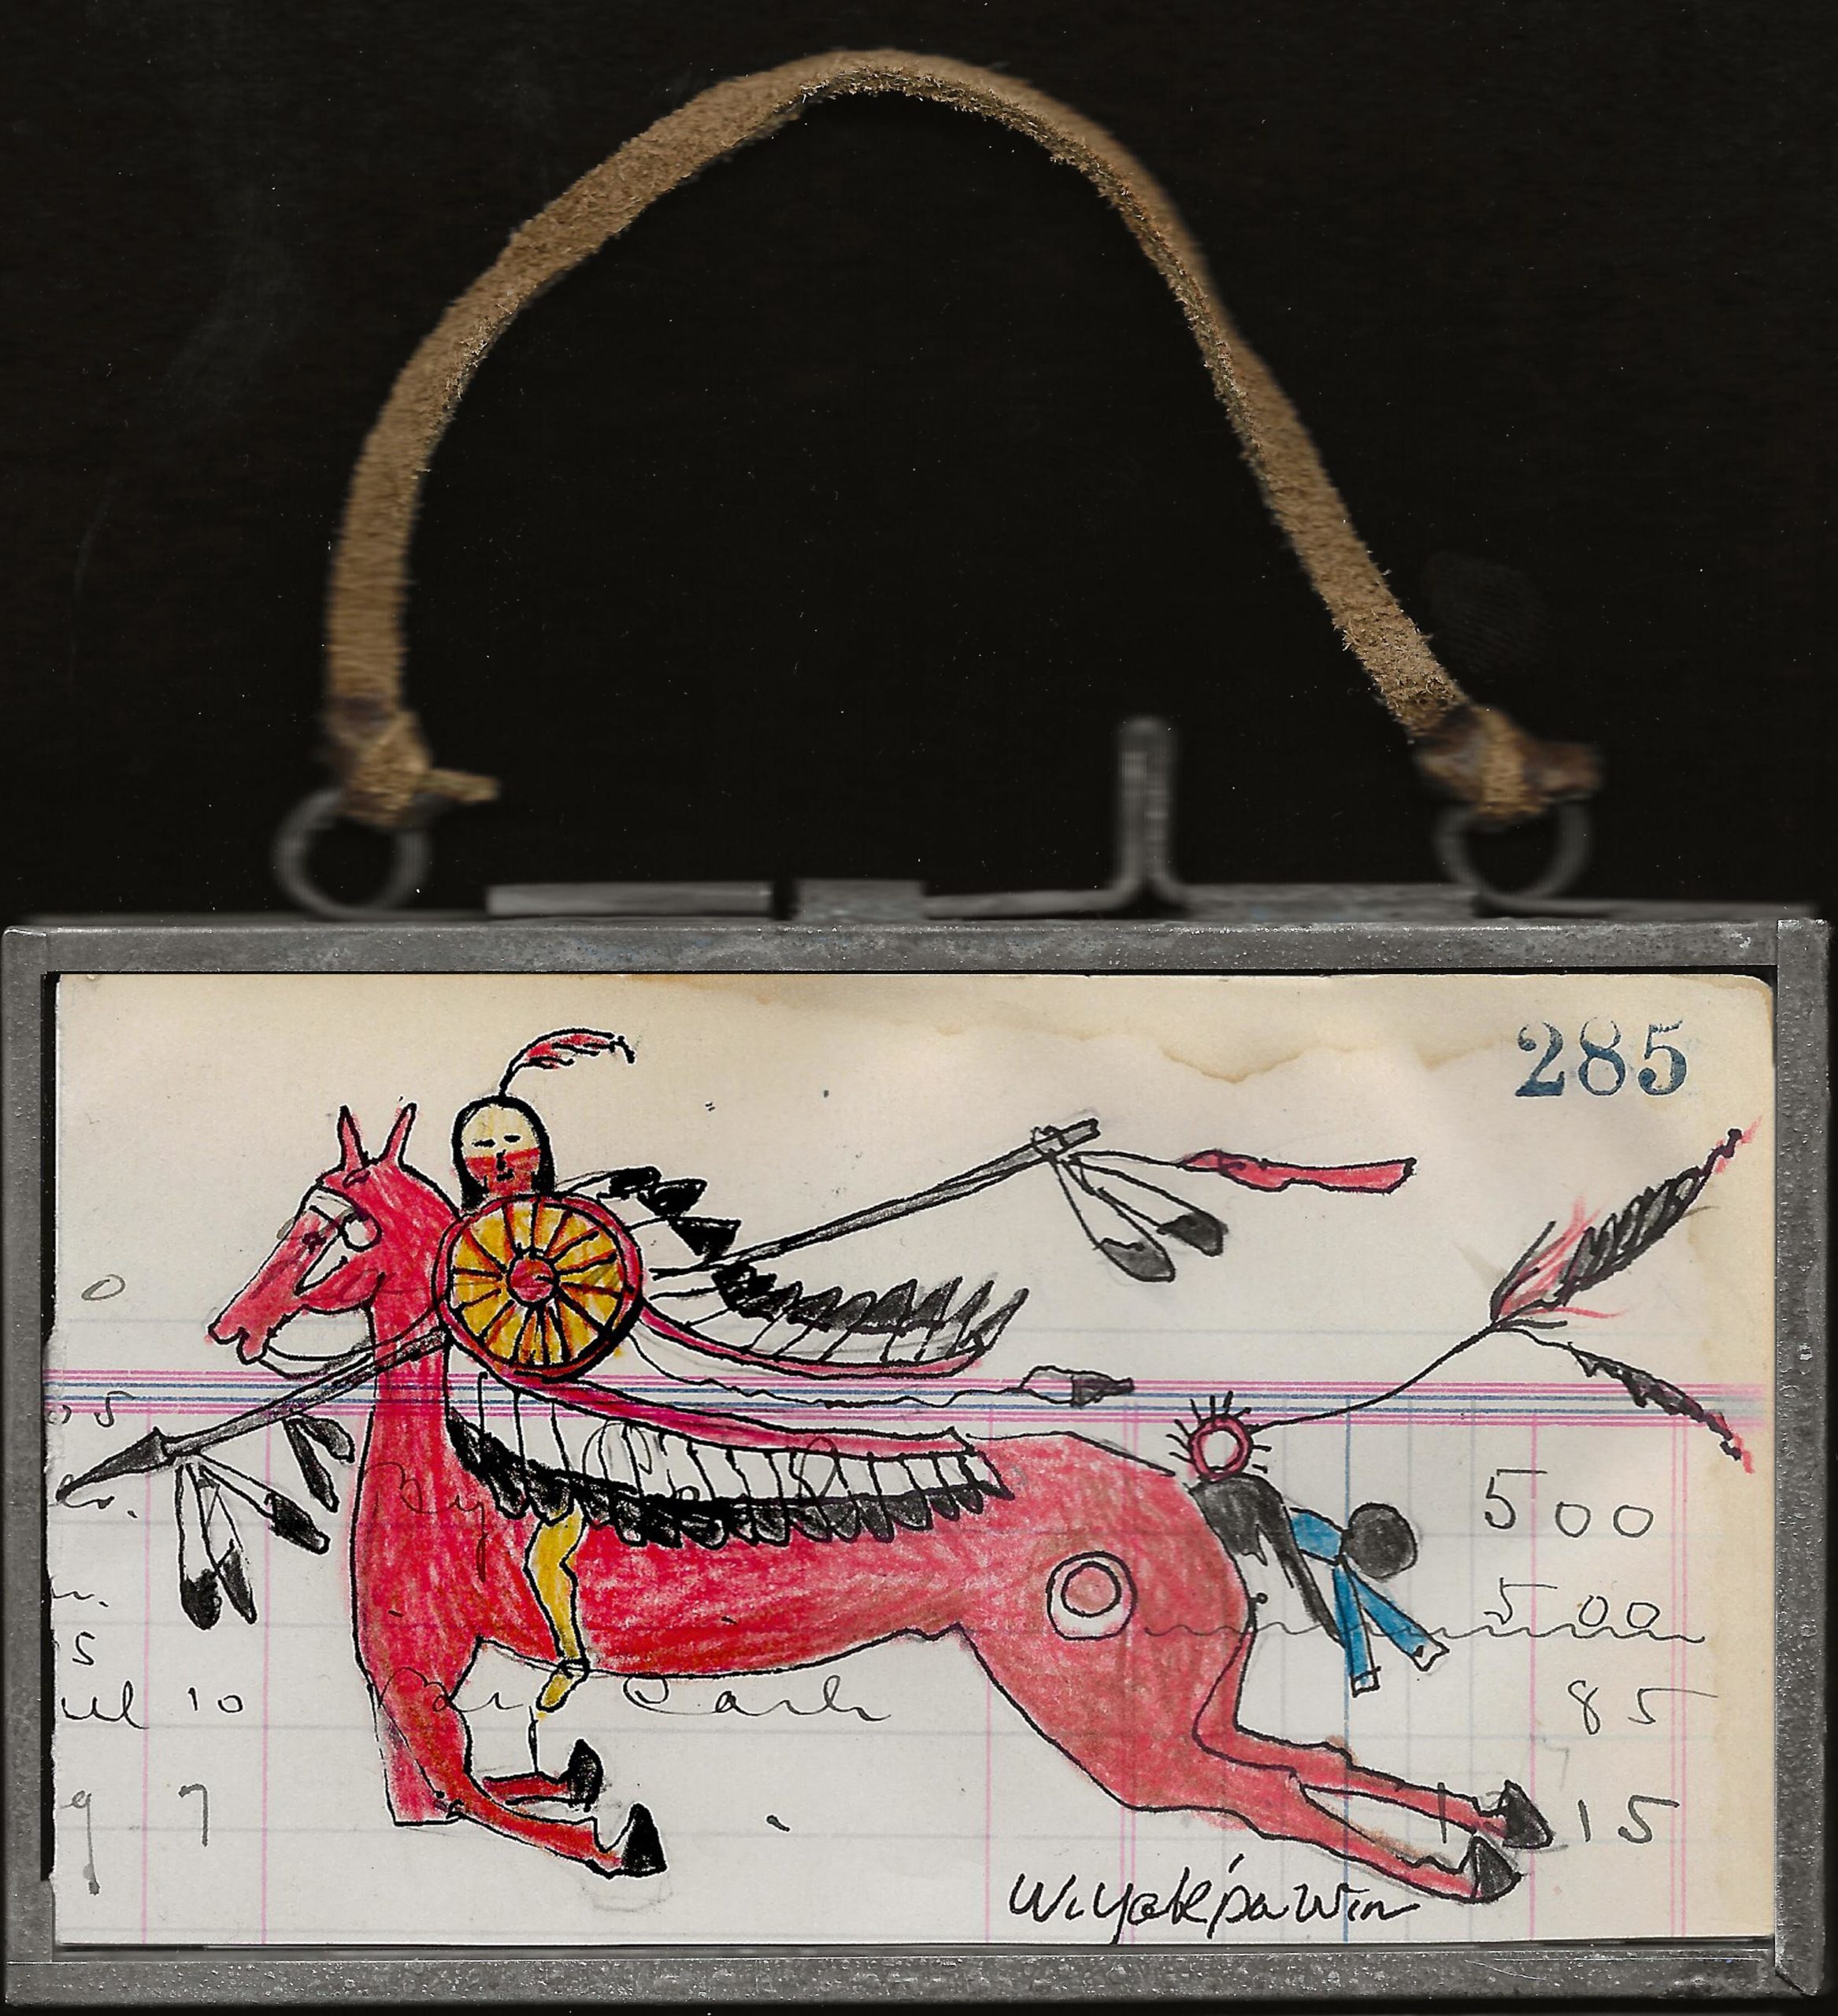 285
0
05
By
500
500
s
10 By Cash 85
9 7 15
Wiyakpa Win